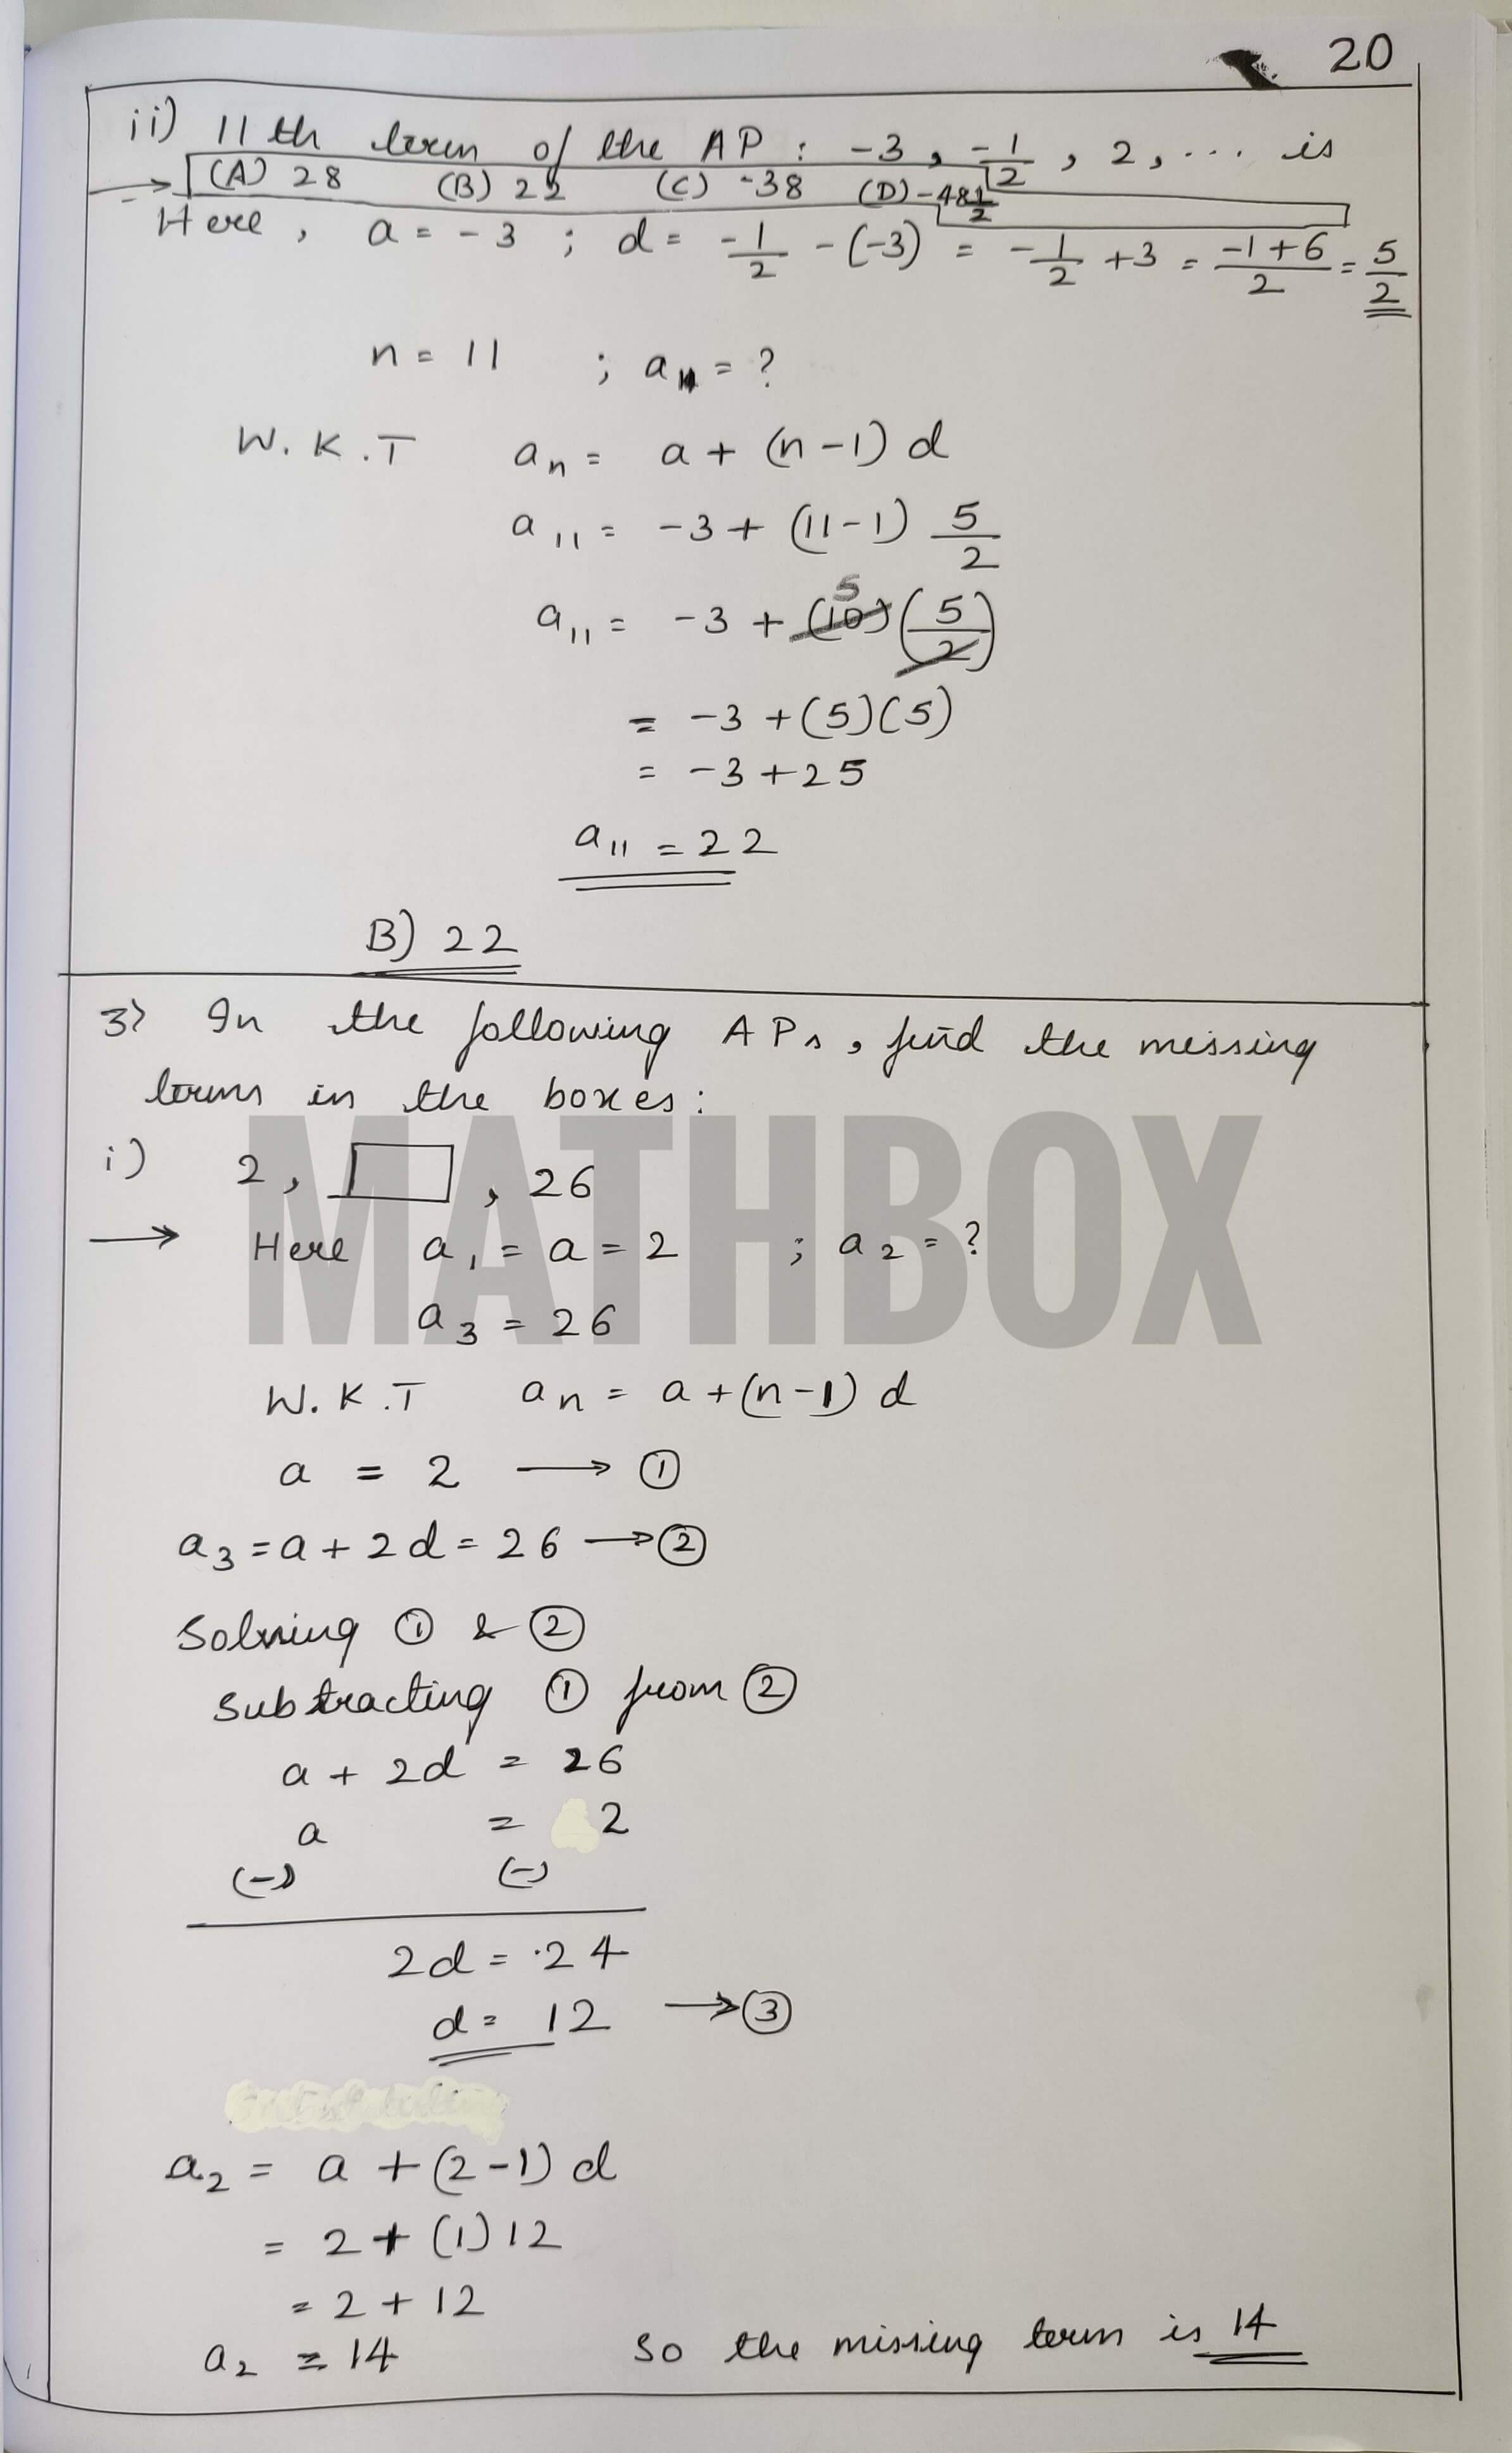 20
ii) 11th term of the AP : -3, -1/2, 2, ... is
(A) 28 (B) 22 (C) -38 (D) -48 1/2
Here, a = -3 ; d = -1/2 - (-3) = -1/2 + 3 = -1+6/2 = 5/2
n = 11 ; a11 = ?
W.K.T an = a + (n-1) d
a11 = -3 + (11-1) 5/2
5
a11 = -3 + (10) (5/2)
= -3 + (5)(5)
= -3 + 25
a11 = 22
B) 22
3) In the following APs, find the missing
terms in the boxes:
i) 2, □, 26
→ Here a1 = a = 2 ; a2 = ?
a3 = 26
W.K.T an = a + (n-1) d
a = 2 → ①
a3 = a + 2d = 26 → ②
Solving ① & ②
Subtracting ① from ②
a + 2d = 26
a = 2
(-) (-)
2d = 24
d = 12 → ③
a2 = a + (2-1) d
= 2 + (1) 12
= 2 + 12
a2 = 14 So the missing term is 14
MATHBOX